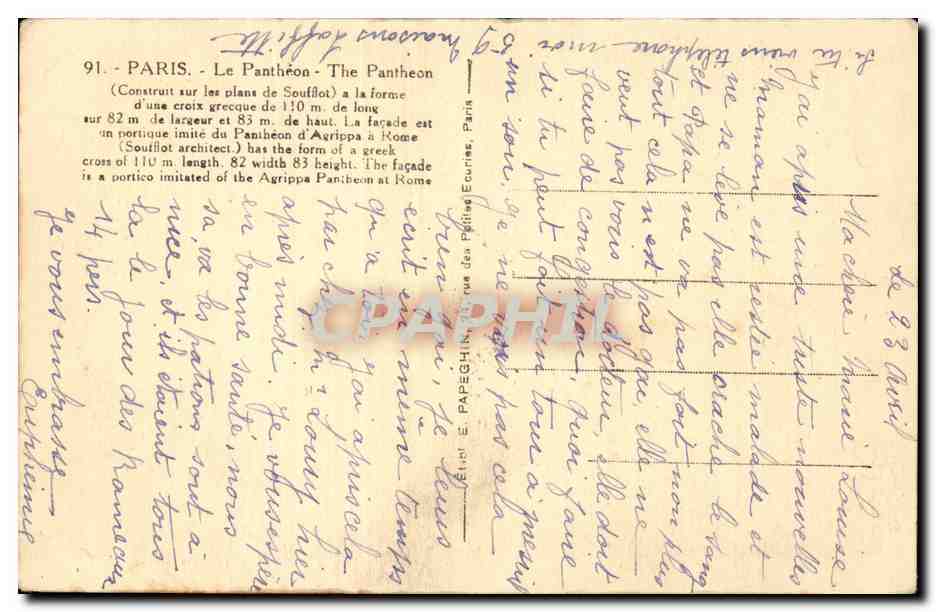 91. - PARIS. - Le Panthéon - The Pantheon
(Construit sur les plans de Soufflot) a la forme
d'une croix grecque de 110 m. de long
sur 82 m de largeur et 83 m. de haut. La façade est
un portique imité du Panthéon d'Agrippa à Rome
(Soufflot architect.) has the form of a greek
cross of 110 m. length. 82 width 83 height. The façade
is a portico imitated of the Agrippa Pantheon at Rome
Etabl. E. PAPEGHIN, rue des Petites Ecuries, Paris
CPAPHIL
Le 23 Avril
Ma chérie Marie Louise
J'ai appris une triste nouvelles
maman est restée malade et
ne se lève pas elle crache le sang
et papa ne va pas fort non plus
tout cela n'est pas gai, elle ne
veut pas voir le docteur, elle doit
faire de congestion, quoi faire
si tu peut fait un tour à
un soir, je ne pas cela
bien gai, je leurs
écrit en même temps
qu'à toi, j'ai appris cela
par chez Louy hier
après midi. Je vous espère
en bonne santé, nous
sa va, les patrons sont à
nice, et ils étaient tous
là le jour des Rameaux
14 pers.
Je vous embrasse
Euphemie
Si tu viens téléphone moi
59 Maisons Laffitte